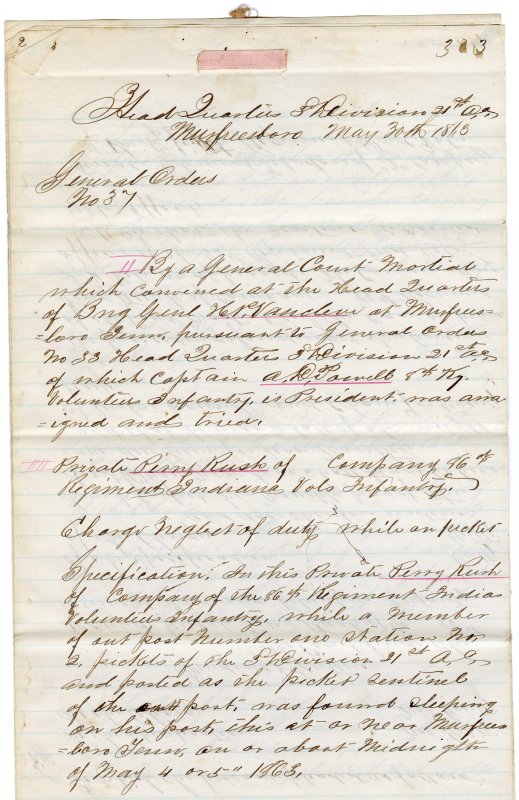 2
3 3 3
Head Quarters 3" Division 21st A.C.
Murfreesboro May 30th 1863
General Orders
No 37
II By a General Court Martial
which convened at the Head Quarters
of Brig Genl H.P. Vancleve at Murfrees=
=boro Tenn, pursuant to General Orders
No 33 Head Quarters 3" Division 21st A.C.
of which Captain A.D. Powell 8th Ky.
Volunteer Infantry, is President, was arra
=igned and tried.
Private Perry Rush of Company 86th
Regiment Indiana Vols Infantry.
Charge Neglect of duty while on picket
Specification. In this Private Perry Rush
of Company of the 86th Regiment Indiana
Volunteers Infantry, while a member
of out post number one Station No.
2, pickets of the 3" Division 21st A.C.
and posted as the picket sentinel
of the out post, was found sleeping
on his post, this at or near Murfrees
=boro Tenn, on or about Midnight
of May 4 or 5" 1863.